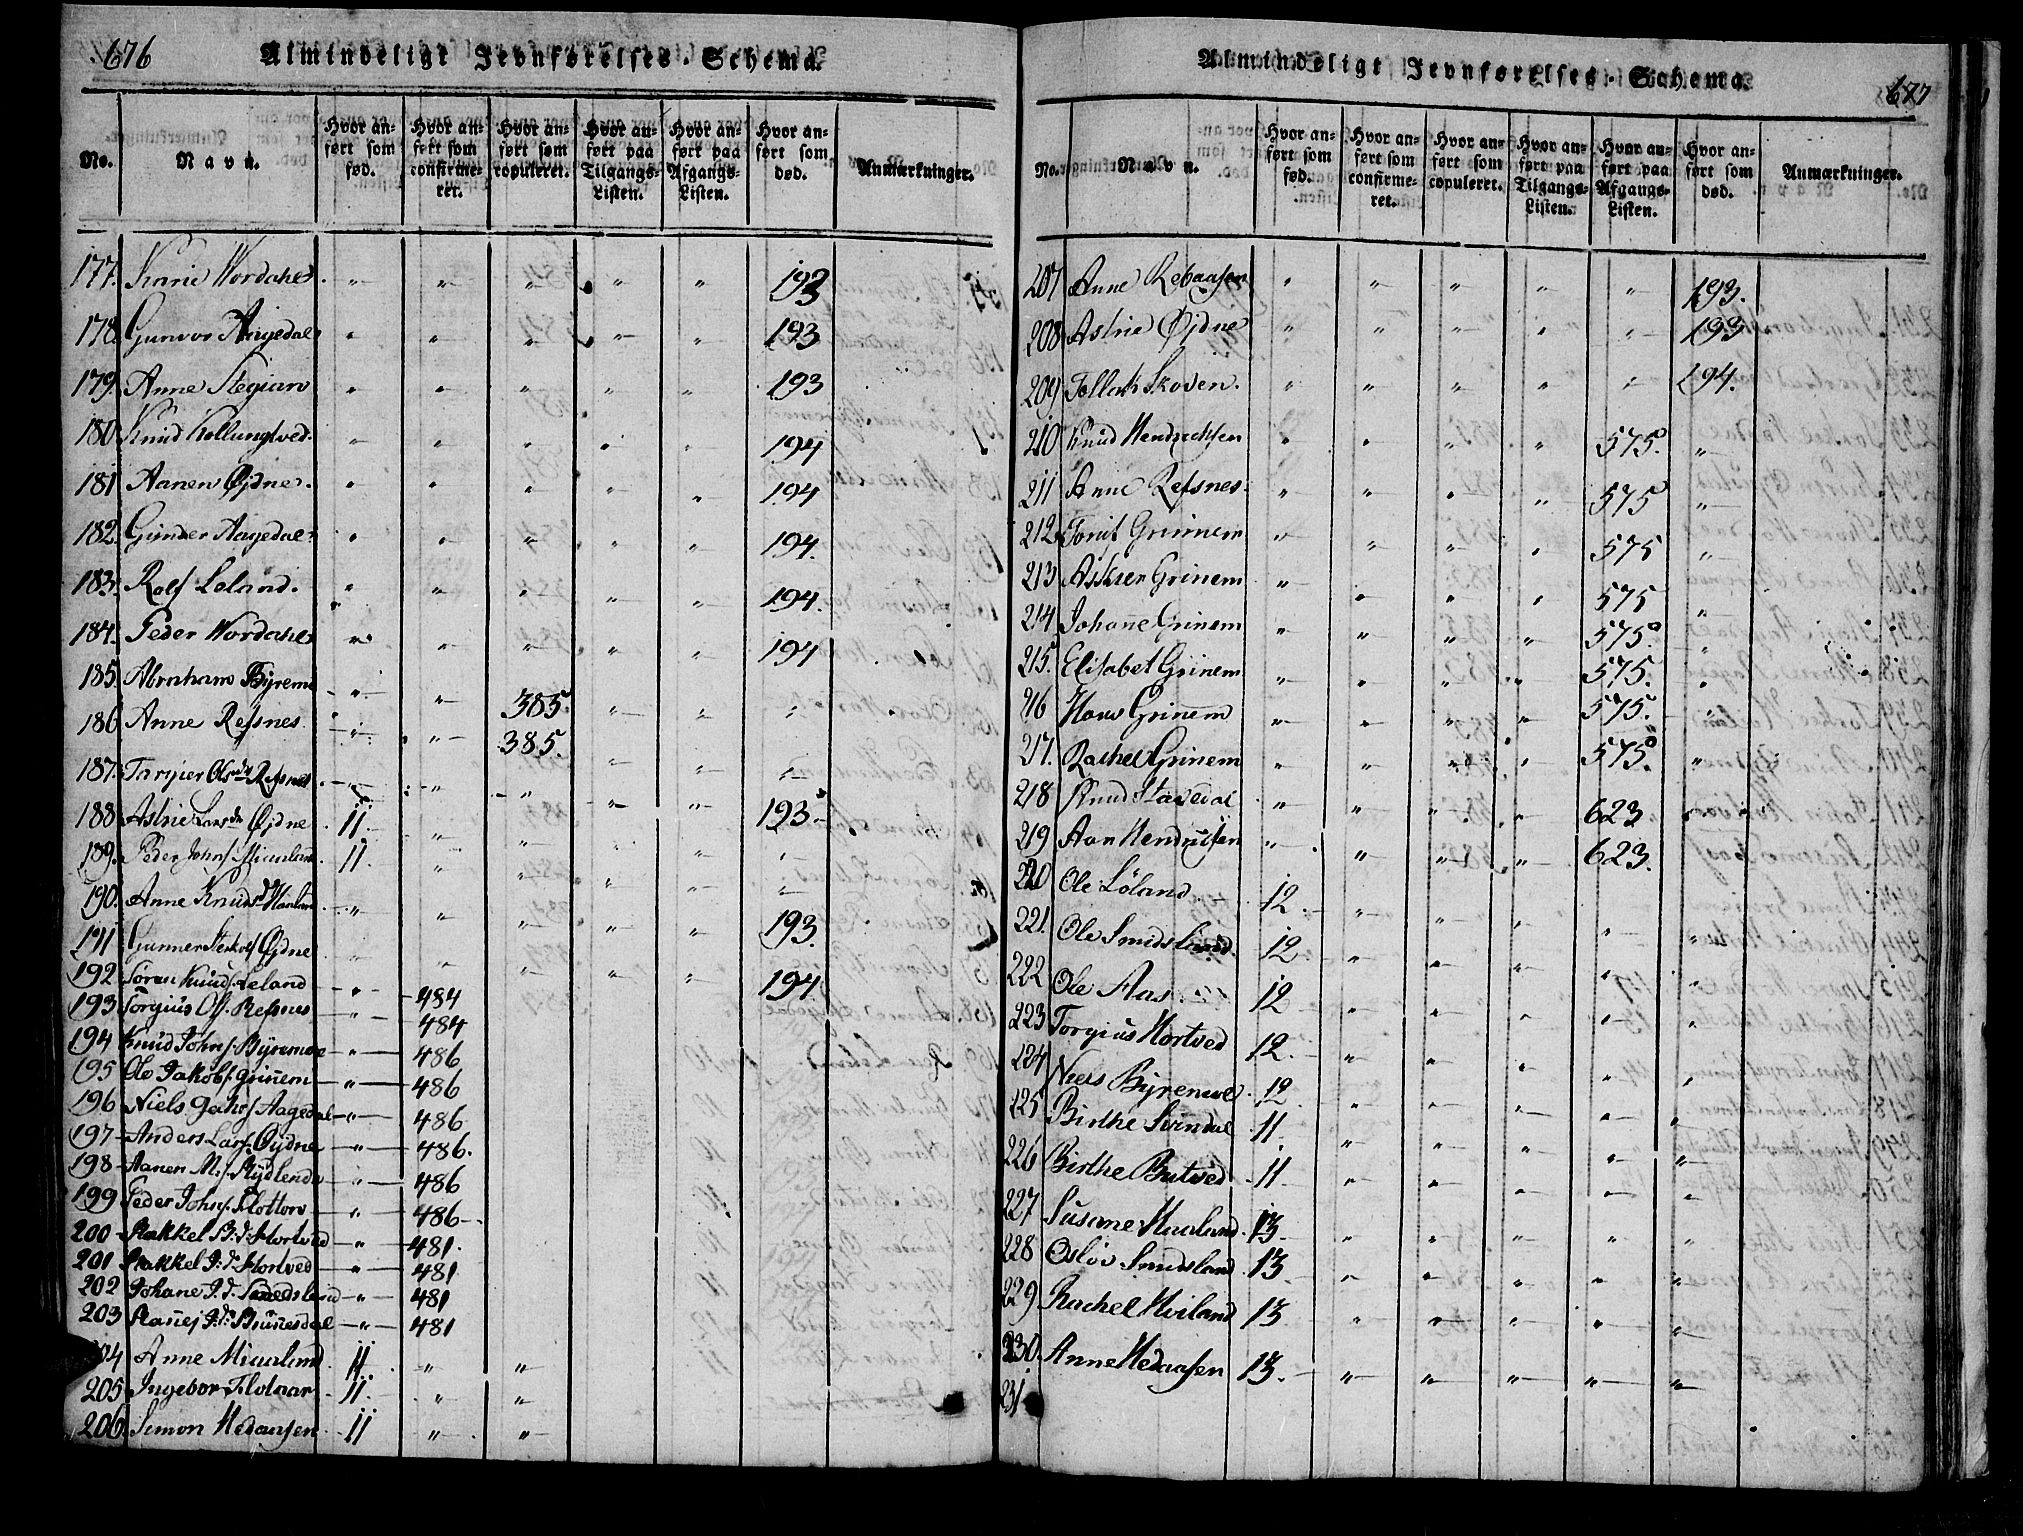 676
Almindeligt Jevnførelses-Schema.
No. Navn. Hvor anført som fød. Hvor anført som confirmeret. Hvor anført som copuleret. Hvor anført paa Tilgangs-Listen. Hvor anført paa Afgangs-Listen. Hvor anført som død. Anmærkninger.
177. Karie Hordahel " " " " " 193
178. Gunvor Aagedal " " " " " 193
179. Anne Stegian " " " " " 193
180 Knud Kollungtved. " " " " " 194
181 Aanen Øjdne. " " " " " 194
182. Gunder Aagedal. " " " " " 194.
183. Rolf Leland. " " " " " 194.
184. Peder Hordahel " " " " " 194
185. Abraham Byremo " " 385. " " "
186 Anne Refsnes " " 385. " " "
187. Targier Olsdtr Refsnes " " " " " 193
188 Astrie Larsdr Øjdne 11. " " " " "
189. Peder Johns. Miaaland 11. " " " " "
190. Anne Knudsdr Haaland " " " " " 193.
191 Gunner Øjdne " " " " 194
192 Søren Knuds. Leland " 484
193 Torgius Ols. Refsnes " 484
194 Knud Johns. Byremoe " 486
195 Ole Jakobs. Grinem " 486
196 Niels Aagedal " 486
197 Anders Lars. Øydne " 486.
198 Aanen Rydlende " 486
199 Peder Johns. Flottorv " 486
200 Rakkel Hortved " 481.
201 Rakkel Hortved " 481
202 Johane Smedsland " 481
203 Brunesdal " 481
204 Anne Miaaland 11. " "
205 Ingebor Flotaar 11. " "
206. Simon Hedaasen 11 " "
677
Almindeligt Jevnførelses-Schema.
No. Navn. Hvor anført som fød. Hvor anført som confirmeret. Hvor anført som copuleret. Hvor anført paa Tilgangs-Listen. Hvor anført paa Afgangs-Listen. Hvor anført som død. Anmærkninger.
207 Anne " " " " " 193.
208 Astrie Øjdne " " " " " 193
209 Tollak Skoven. " " " " " 194.
210 Knud Hendrichsen " " " " 575. "
211 Anne Refsnes. " " " " 575 "
212 Tonis Grinnem " " " " 575 "
213 Asker Grinem " " " " 575 "
214 Johanne Grinem " " " " 575. "
215. Elisabet Grinem " " " " 575. "
216 Hans Grinem " " " " 575. "
217. Rachel Grinem " " " " 575. "
218 Knud Stavedal " " " " 623 "
219 Aan Hendriksen " " " " 623.
220 Ole Løland 12. " " " " "
221. Ole Smidsland. 12 " " " " "
222 Ole Aas 12 " " " " "
223 Torgius Hortved 12. " " " " "
224 Niels Byremoe 12 " " " " "
225 Birthe Svindal 11. " " " " "
226 Birthe Butved 11 " " " " "
227 Susanne Haaland 13. " " " " "
228 Osløv Smidsland 13 " " " " "
229 Rachel Hviland 13 " " " " "
230. Anne Hedaasen 13. " " " " "
231